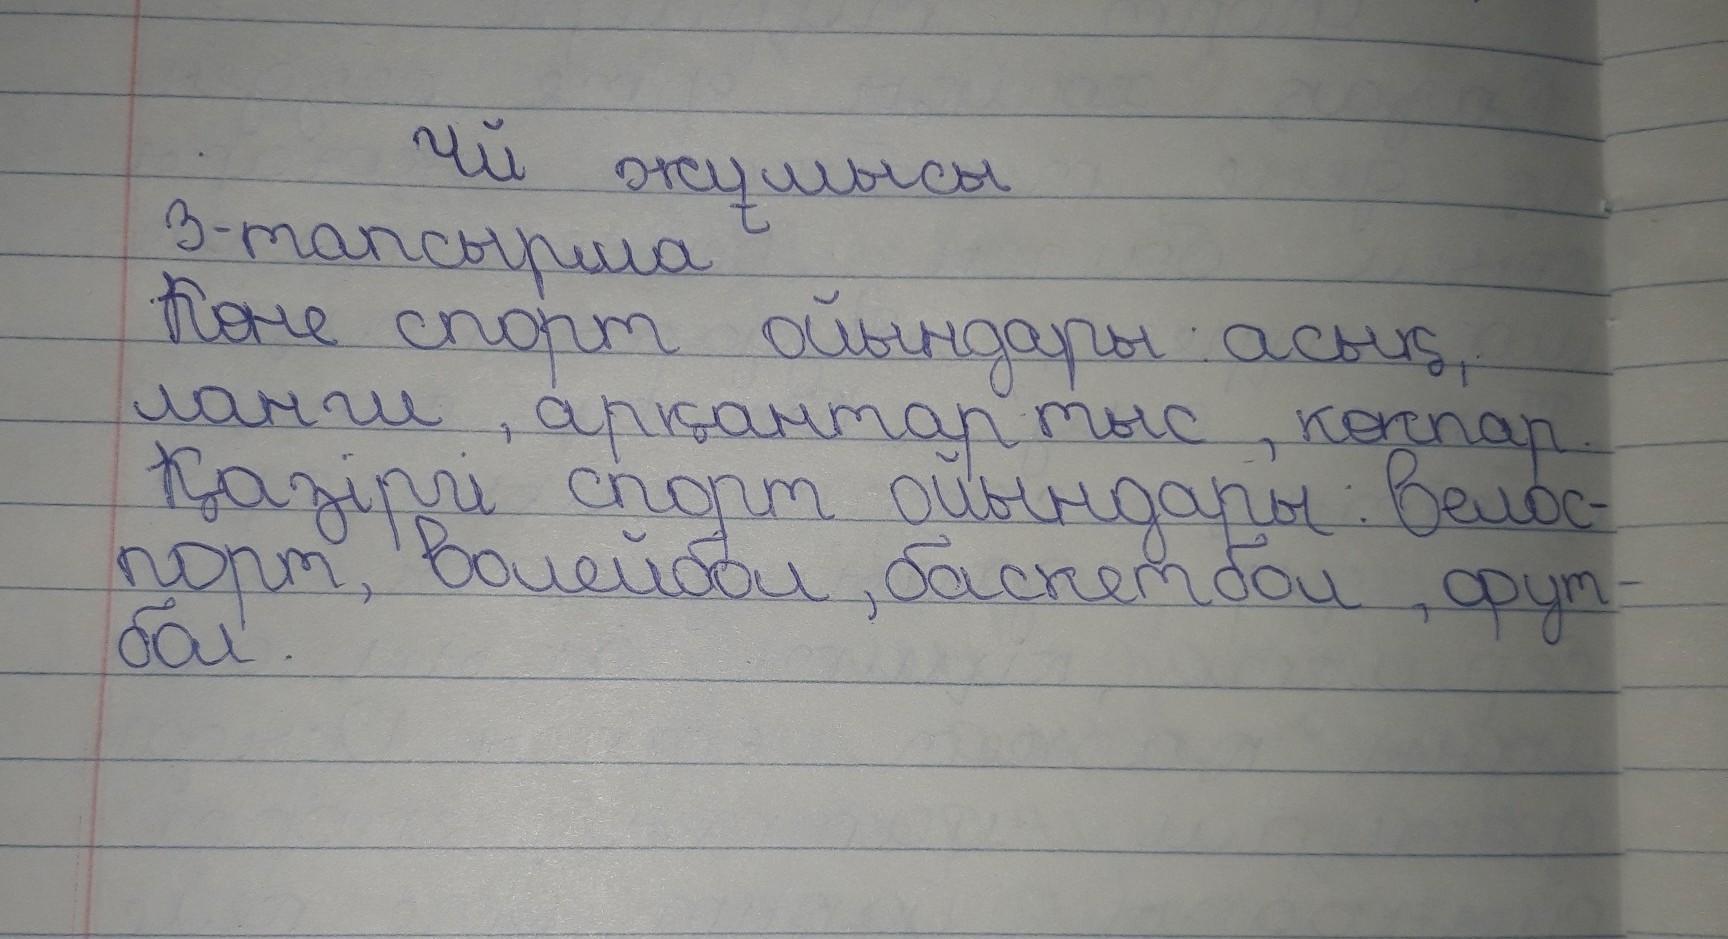 Үй жұмысы
3-тапсырма
Көне спорт ойындары: асық,
ланги, арқантартыс, көкпар.
Қазіргі спорт ойындары: велос-
порт, волейбол, баскетбол, фут-
бол.